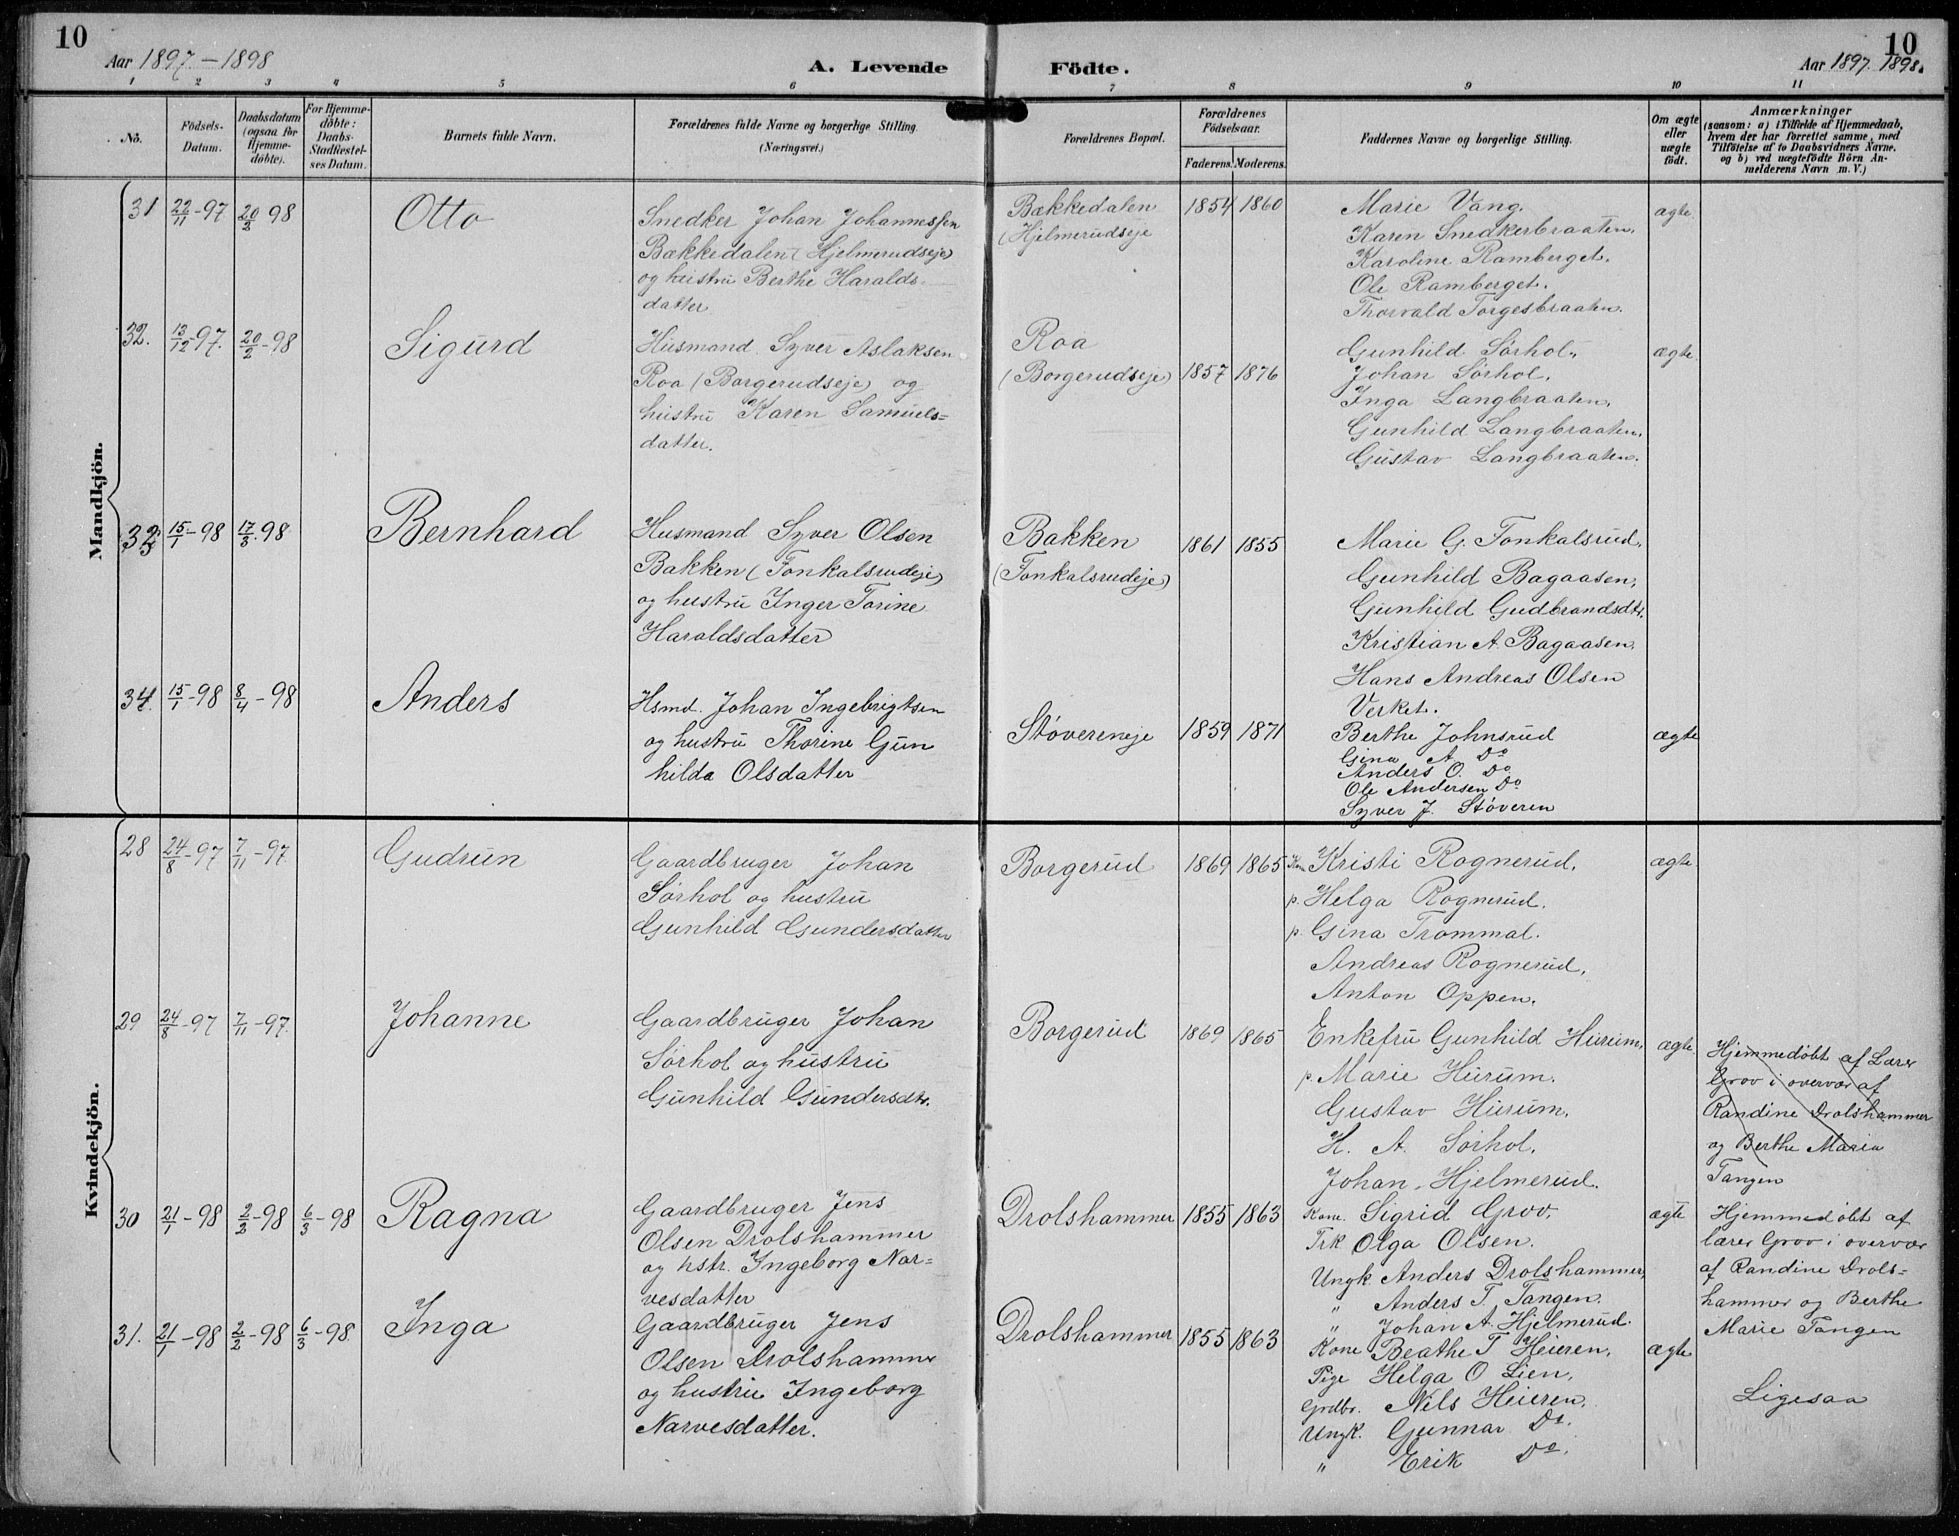 10
Aar 1897 – 1898
A. Levende Födte.
Aar 1897. 1898.
10
1 2 3 4 5 6 7 8 9 10 11
No.
Födsels-Datum.
Daabsdatum (ogsaa for Hjemme-döbte).
For Hjemme-döbte: Daabs-Stadfæstel-ses Datum.
Barnets fulde Navn.
Forældrenes fulde Navne og borgerlige Stilling.
(Næringsvei.)
Forældrenes Bopæl.
Forældrenes Födselsaar.
Faderens. Moderens.
Faddernes Navne og borgerlige Stilling.
Om ægte eller uægte födt.
Anmærkninger
(saasom: a) i Tilfælde af Hjemmedaab,
hvem der har forrettet samme, med
Tilföielse af to Daabsvidners Navne.
og b) ved uægtefödte Börn An-
melderens Navn m. V.)
Mandkjön.
31 22/11-97 20/2 98 Otto
Snedker Johan Johannessen
Bækkedalen (Hjelmerudseje)
og hustru Berthe Haralds-
datter
Bækkedalen
(Hjelmerudseje
1854 1860
Marie Vang.
Karen Snedkerbraaten.
Karoline Ramberget.
Ole Ramberget.
Thorvald Torgesbraaten.
ægte.
32. 13/12-97. 20/2-98 Sigurd
Husmand Syver Aslaksen
Roa (Borgerudseje) og
hustru Karen Samuels=
datter.
Roa
(Borgerudseje)
1857 1876
Gunhild Sørhol.
Johan Sørhol.
Inga Langbraaten.
Gunhild Langbraaten.
Gustav Langbraaten.
ægte.
33 15/1-98 17/3.98 Bernhard
Husmand Syver Olsen
Bakken (Tonkalsrudeje)
og hustru Inger Torine
Haraldsdatter
Bakken
(Tonkalsrudeje)
1861 1855
Marie G. Tonkalsrud.
Gunhild Bagaasen.
Gunhild Gudbrandsdtr.
Kristian A. Bagaasen.
Hans Andreas Olsen
Verket.
34. 15/1-98 8/4-98 Anders
Hsmd. Johan Ingebrigtsen
og hustru Thorine Gun
hilda Olsdatter
Støvereneje
1859 1871
Berthe Johnsrud
Gina A Do
Anders O. Do
Ole Andersen Do
Syver J. Støveren
ægte
Kvindekjön.
28 24/8-97 7/11-97. Gudrun
Gaardbruger Johan
Sørhol og hustru
Gunhild Gundersdatter
Borgerud
1869 1865
Kone Kristi Rognerud.
p. Helga Rognerud.
p. Gina Trommal.
Andreas Rognerud.
Anton Oppen.
ægte
29 24/8-97 7/11-97. Johanne
Gaardbruger Johan
Sørhol og hustru
Gunhild Gundersdtr.
Borgerud
1869 1865
Enkefru Gunhild Hurum.
p. Marie Hurum.
Gustav Hurum.
H. A. Sørhol.
Johan Hjelmerud.
ægte
Hjemmedøbt af Lærer
Grov i overvær af
Randine Drolshammer
og Berthe Maria
Tangen
30 21/1-98 2/2-98 6/3-98 Ragna
Gaardbruger Jens
Olsen Drolshammer
og hstr. Ingeborg Nar=
vesdatter
Drolshammer
1855 1863
Kone. Sigrid Grov.
Frk Olga Olsen.
Ungk Anders Drolshammer,
" Anders T. Tangen.
" Johan A. Hjelmerud.
ægte
Hjemmedøbt af
lærer Grov i overvær
af Randine Drols=
hammer og Berthe
Marie Tangen
31. 21/1-98 2/2-98 6/3-98 Inga
Gaardbruger Jens
Olsen Drolshammer
og hustru Ingeborg
Narvesdatter.
Drolshammer
1855 1863
Kone Beathe T Heieren.
Pige Helga O Lien.
Grdbr. Nils Heieren.
Ungk. Gunnar Do.
" Erik Do.
ægte
Ligesaa